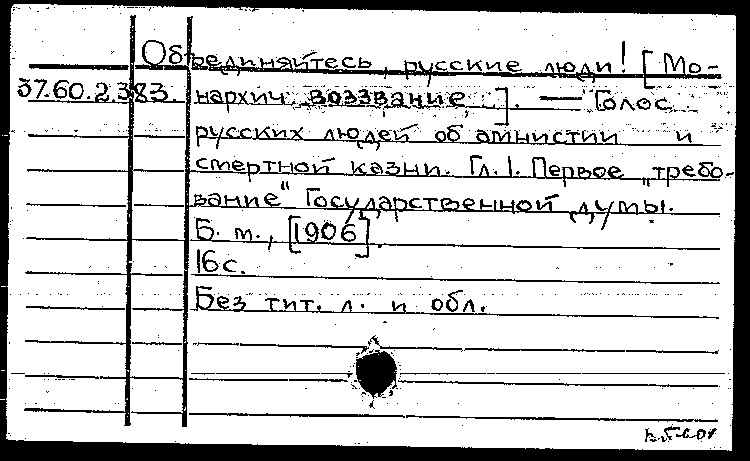 Объединяйтесь, русские люди! [Мо-
37.60.2.383. нархич. воззвание.]. — Голос
русских людей об амнистии и
смертной казни. Гл. 1. Первое „требо-
вание“ Государственной думы.
Б. м., [1906].
16 с.
Без тит. л. и обл.